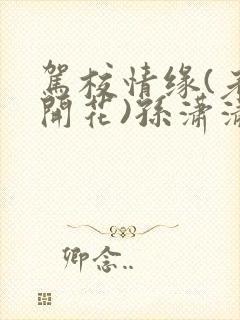 驾校情缘(
開花)孫潇
卿念..